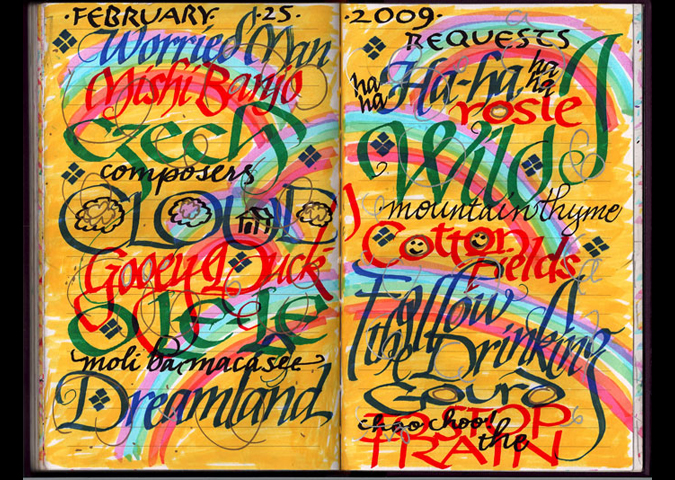 ·FEBRUARY· ·25·
Worried Man
Mishi Banjo
Czech
composers
CLOUD
Gooey Duck
Olele
moli ba macasee
Dreamland
·2009·
REQUESTS
ha ha Ha-ha ha ha
rosie
Wild
mountain thyme
Cotton
Fields
Follow
the Drinking
Gourd
choo choo! STOP
the
TRAIN